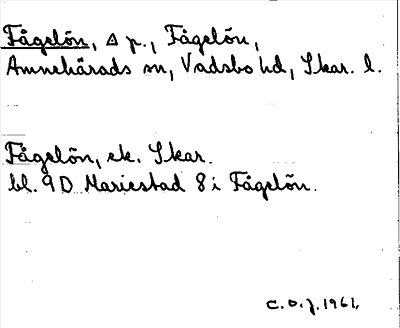 Fågelön, Δ p., Fågelön,
Amnehärads sn, Vadsbo hd, Skar. l.
Fågelön, ek. Skar.
bl. 9D Mariestad 8 i Fågelön.
C.O.J. 1961.